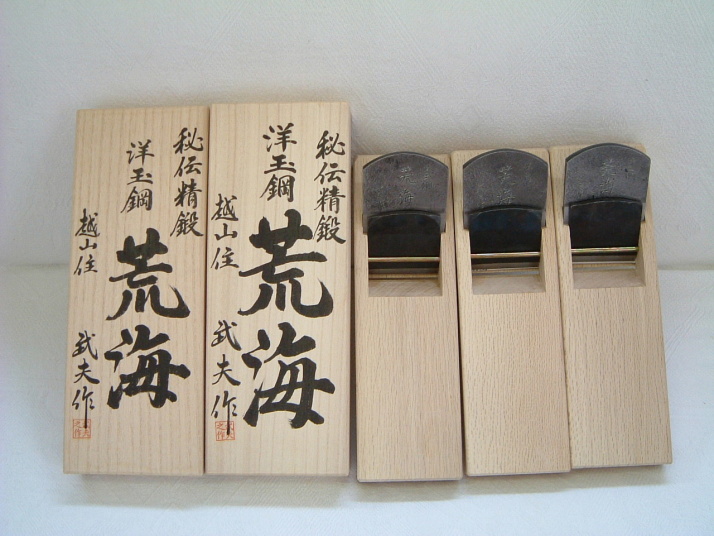 秘伝精鍛
洋玉鋼
荒海
越山住 武夫作
秘伝精鍛
洋玉鋼
荒海
越山住 武夫作
荒海
荒海
荒海